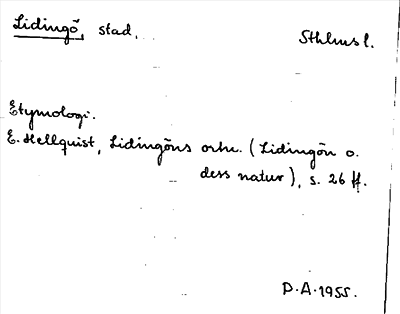 Lidingö, stad. Sthlms l.
Etymologi.
E. Hellquist, Lidingöns ortn. (Lidingön o.
dess natur), s. 26 ff.
D.A. 1955.